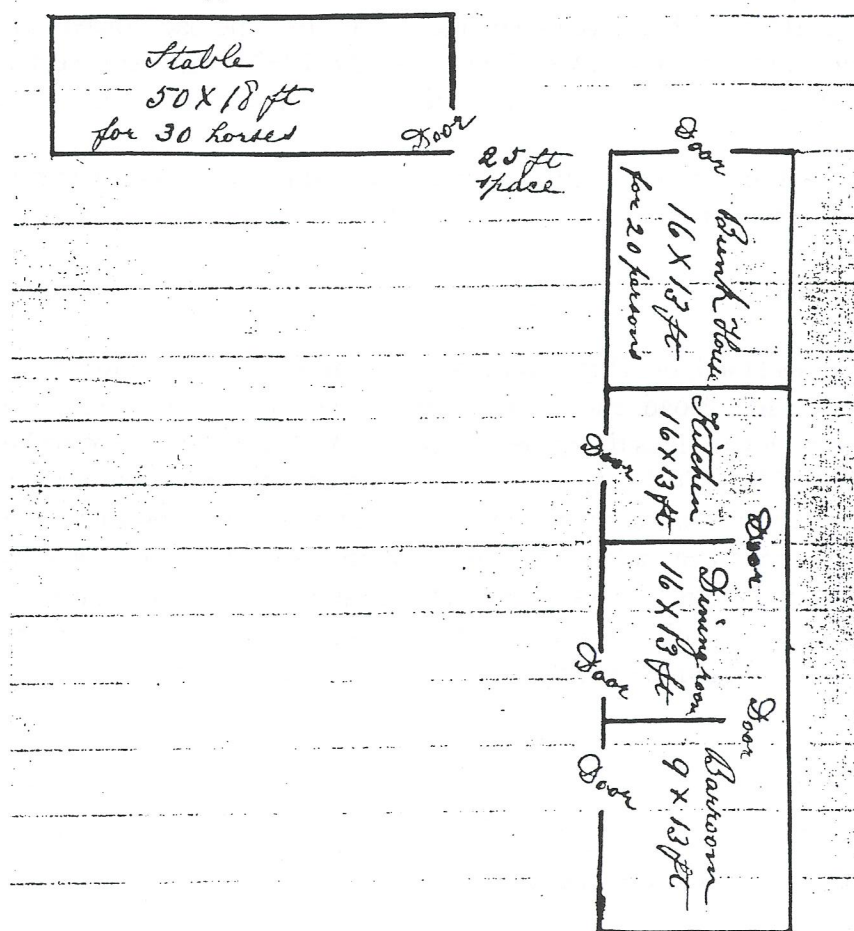 Stable
50 X 18 ft
for 30 horses
Door
25 ft
space
Door
Bunk House
16 X 13 ft
for 20 persons
Door
Kitchen
16 X 13 ft
Door
Dining room
16 X 13 ft
Door
Door
Door
Barroom
9 X 13 ft